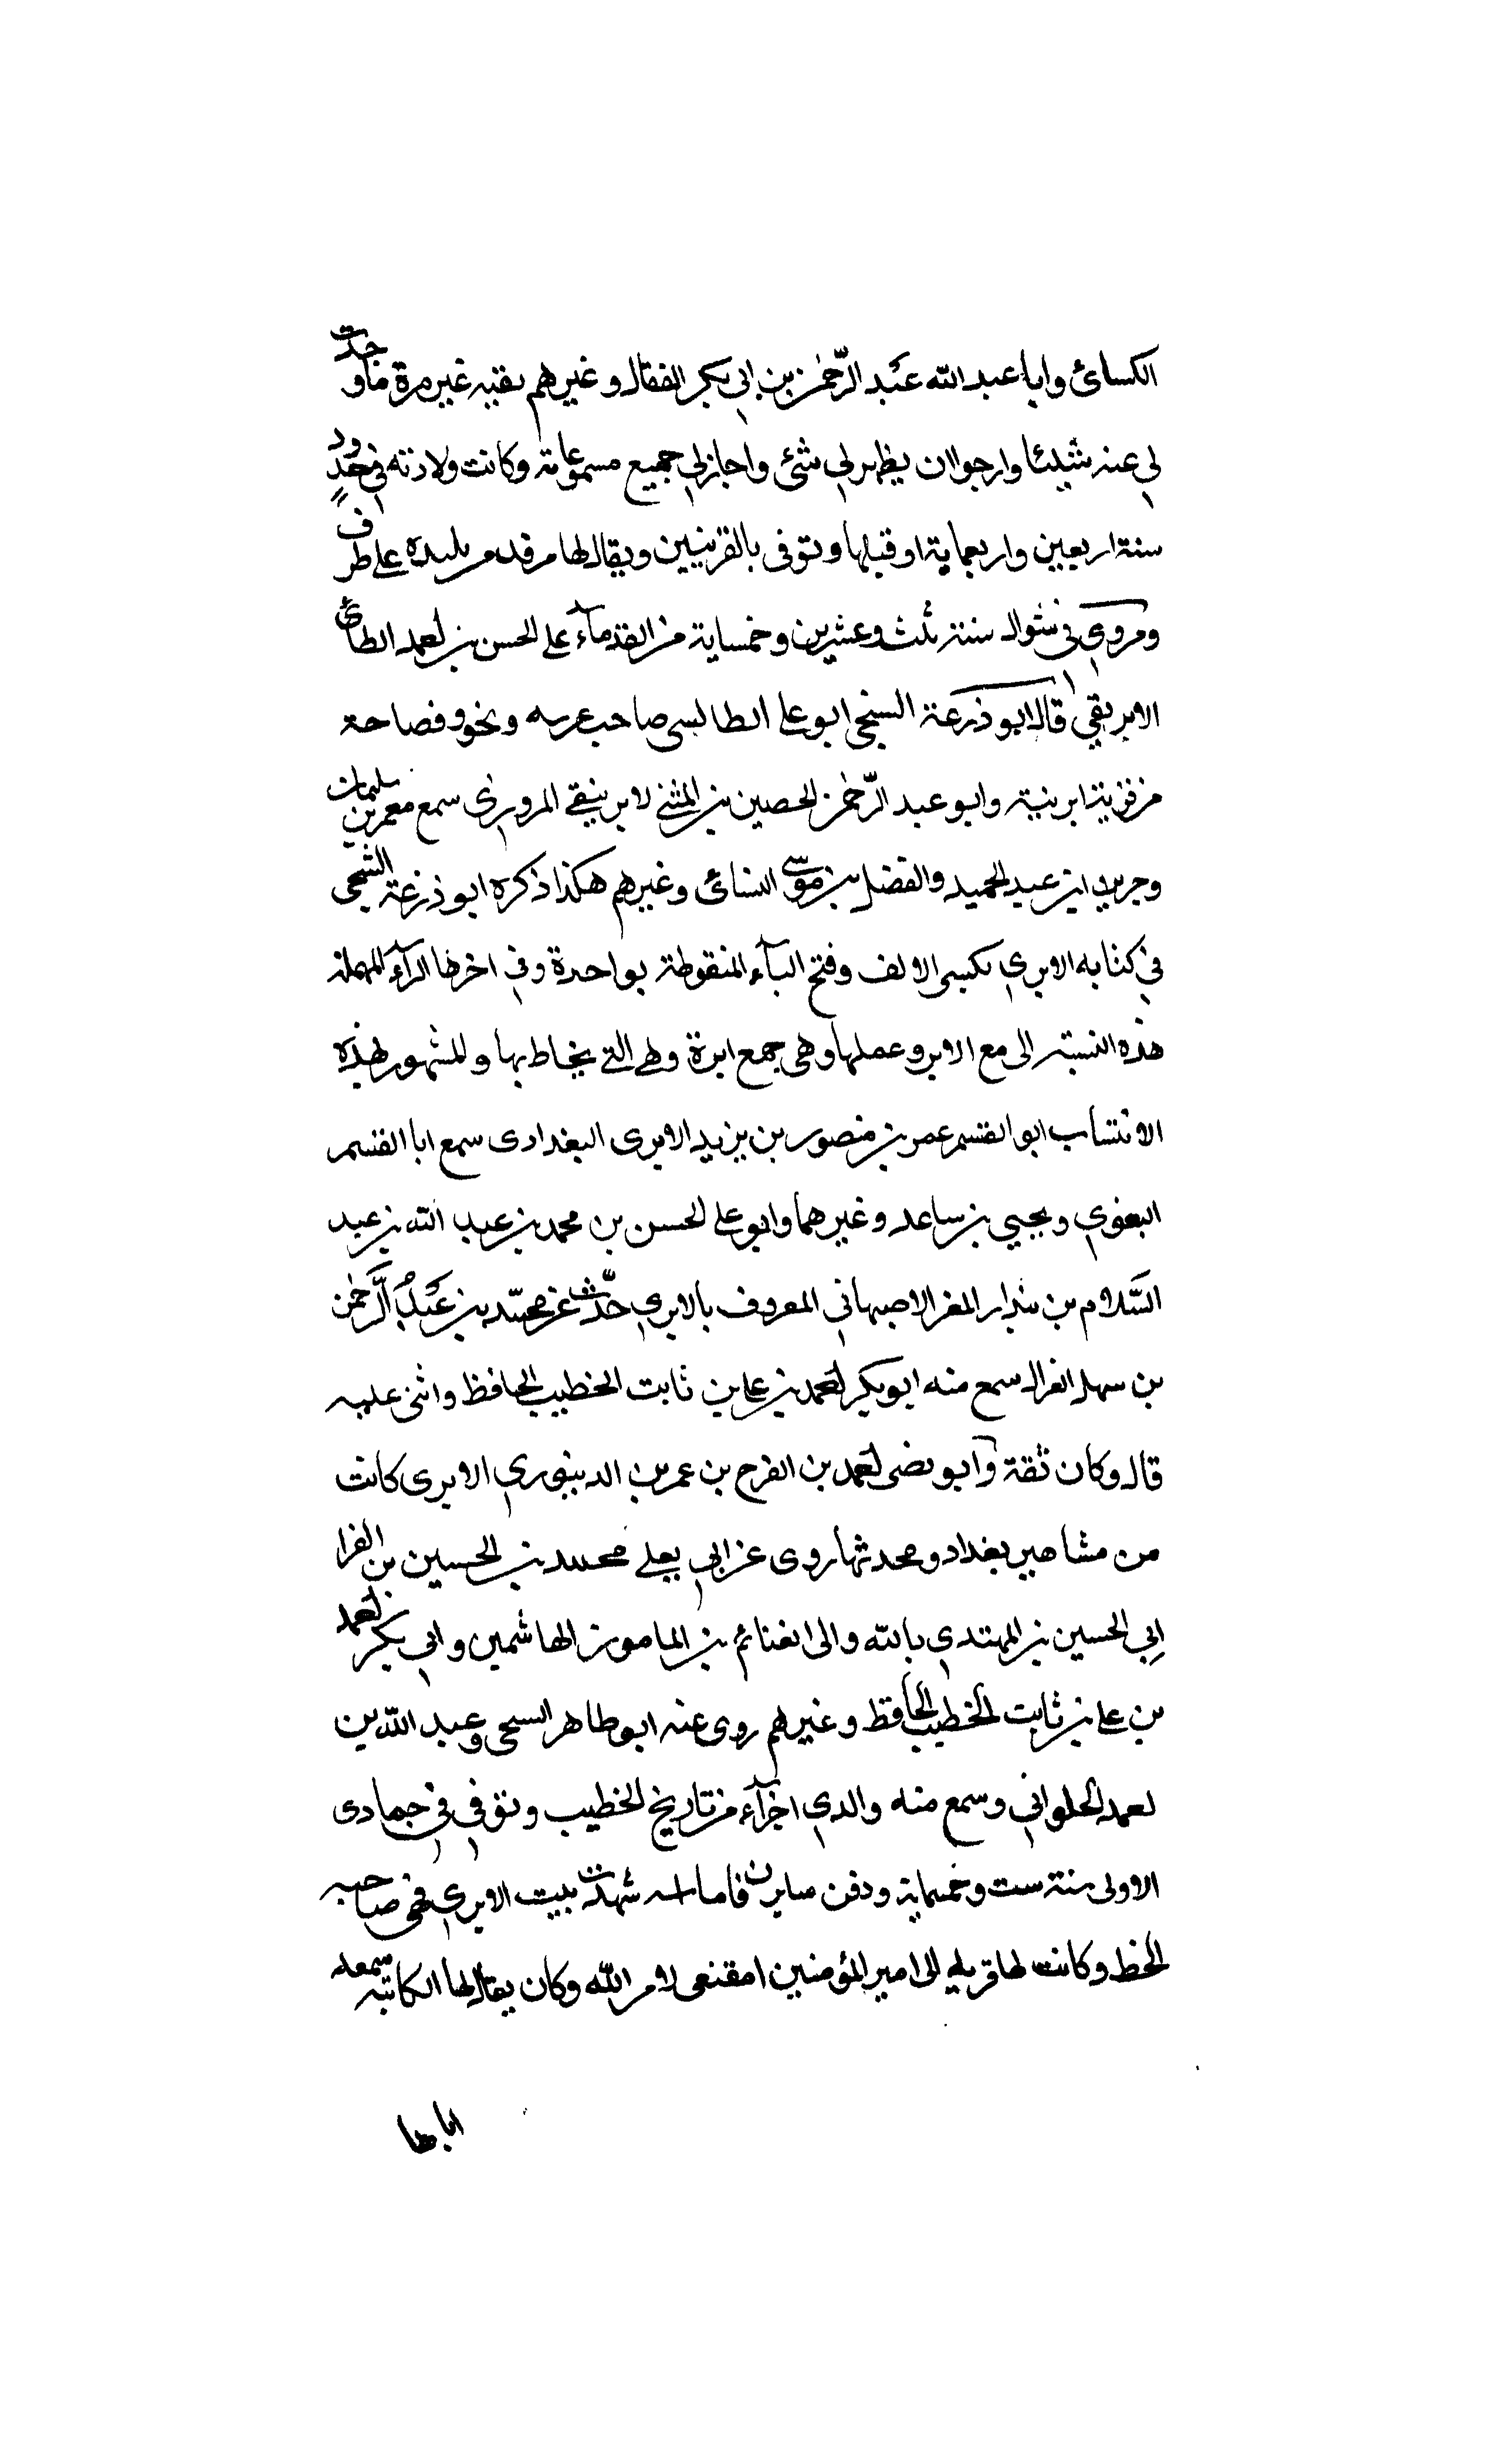 الكسائ وابا عبد الله عبد الرّحمن بن ابي بكر القفال وغيرهم لقيته غير مرة ما وجدت
لي عنه شيئا وارجوا ان يظهر لي شئ واجاز لي جميع مسموعاته وكانت ولادته في حدود
سنة اربعين واربعماية او قبلها وتوفى بالقرينين ويقال لها مرقدم بليدة على طرف
ومروي في شوال سنة ثلث وعشرين وخمساية من القدمآء على الحسن بن احمد الطائ
الابريقي قال ابو ذرعة السنجي ابو على الطالسى صاحب عربيه ونحو وفصاحة
من قرية ابرينية وابو عبد الرّحمن الحصين بن المثنى لابرينقي المروزى سمع معمر بن سليمان
وجرير ابن عبد الحميد والفضل بن موسى النسائ وغيرهم هكذا ذكره ابو ذرعة السنجى
في كتابه الابري بكسر الالف وفتح البآء المنقوطة بواحدة وفي اخرها الرآء المهملة
هذه النسبة الى مع الابر وعملها وهى جمع ابرة وهي التي يخاط بها والمشهور بهذه
الانتساب ابو القسم عمر بن منصور بن يزيد الابرى البغدادى سمع ابا القسم
البغوي ويحيي بن ساعد وغيرهما وابو على الحسن بن محمد بن عبد الله بن عبد
السّلام بن بندار المغر الاصبهاني المعروف بالابري حدّث عن محمد بن عبد الرّحمن
بن سهل الغزال سمع منه ابو بكر احمد بن على بن ثابت الخطيب الحافظ واثنى عليه
قال وكان ثقة وابو نصر احمد بن الفرج بن عمر بن الدينوري الابرى كانت
من مشاهير بغداد ومحدثها روى عن ابي يعلى محمد بن الحسين بن الفرا
ابي الحسين بن المهتدي بالله والى الغنائم بن المامون الهاشمين وابي بكر بن احمد
بن على بن ثابت الخطيب الحافظ وغيرهم روى عنه ابو طاهر السنجى وعبد الله بن
احمد الحلواني وسمع منه والدي اجزآء من تاريخ الخطيب وتوفي في جمادى
الاولى سنة ست وخمسماية ودفن فاما شهدت ببيت الابري فهي صاحبه
الخط وكانت لها قربه الى امير المؤمنين امقتعى لامر الله وكان يقال لها الكاتبه سمعه
اباها